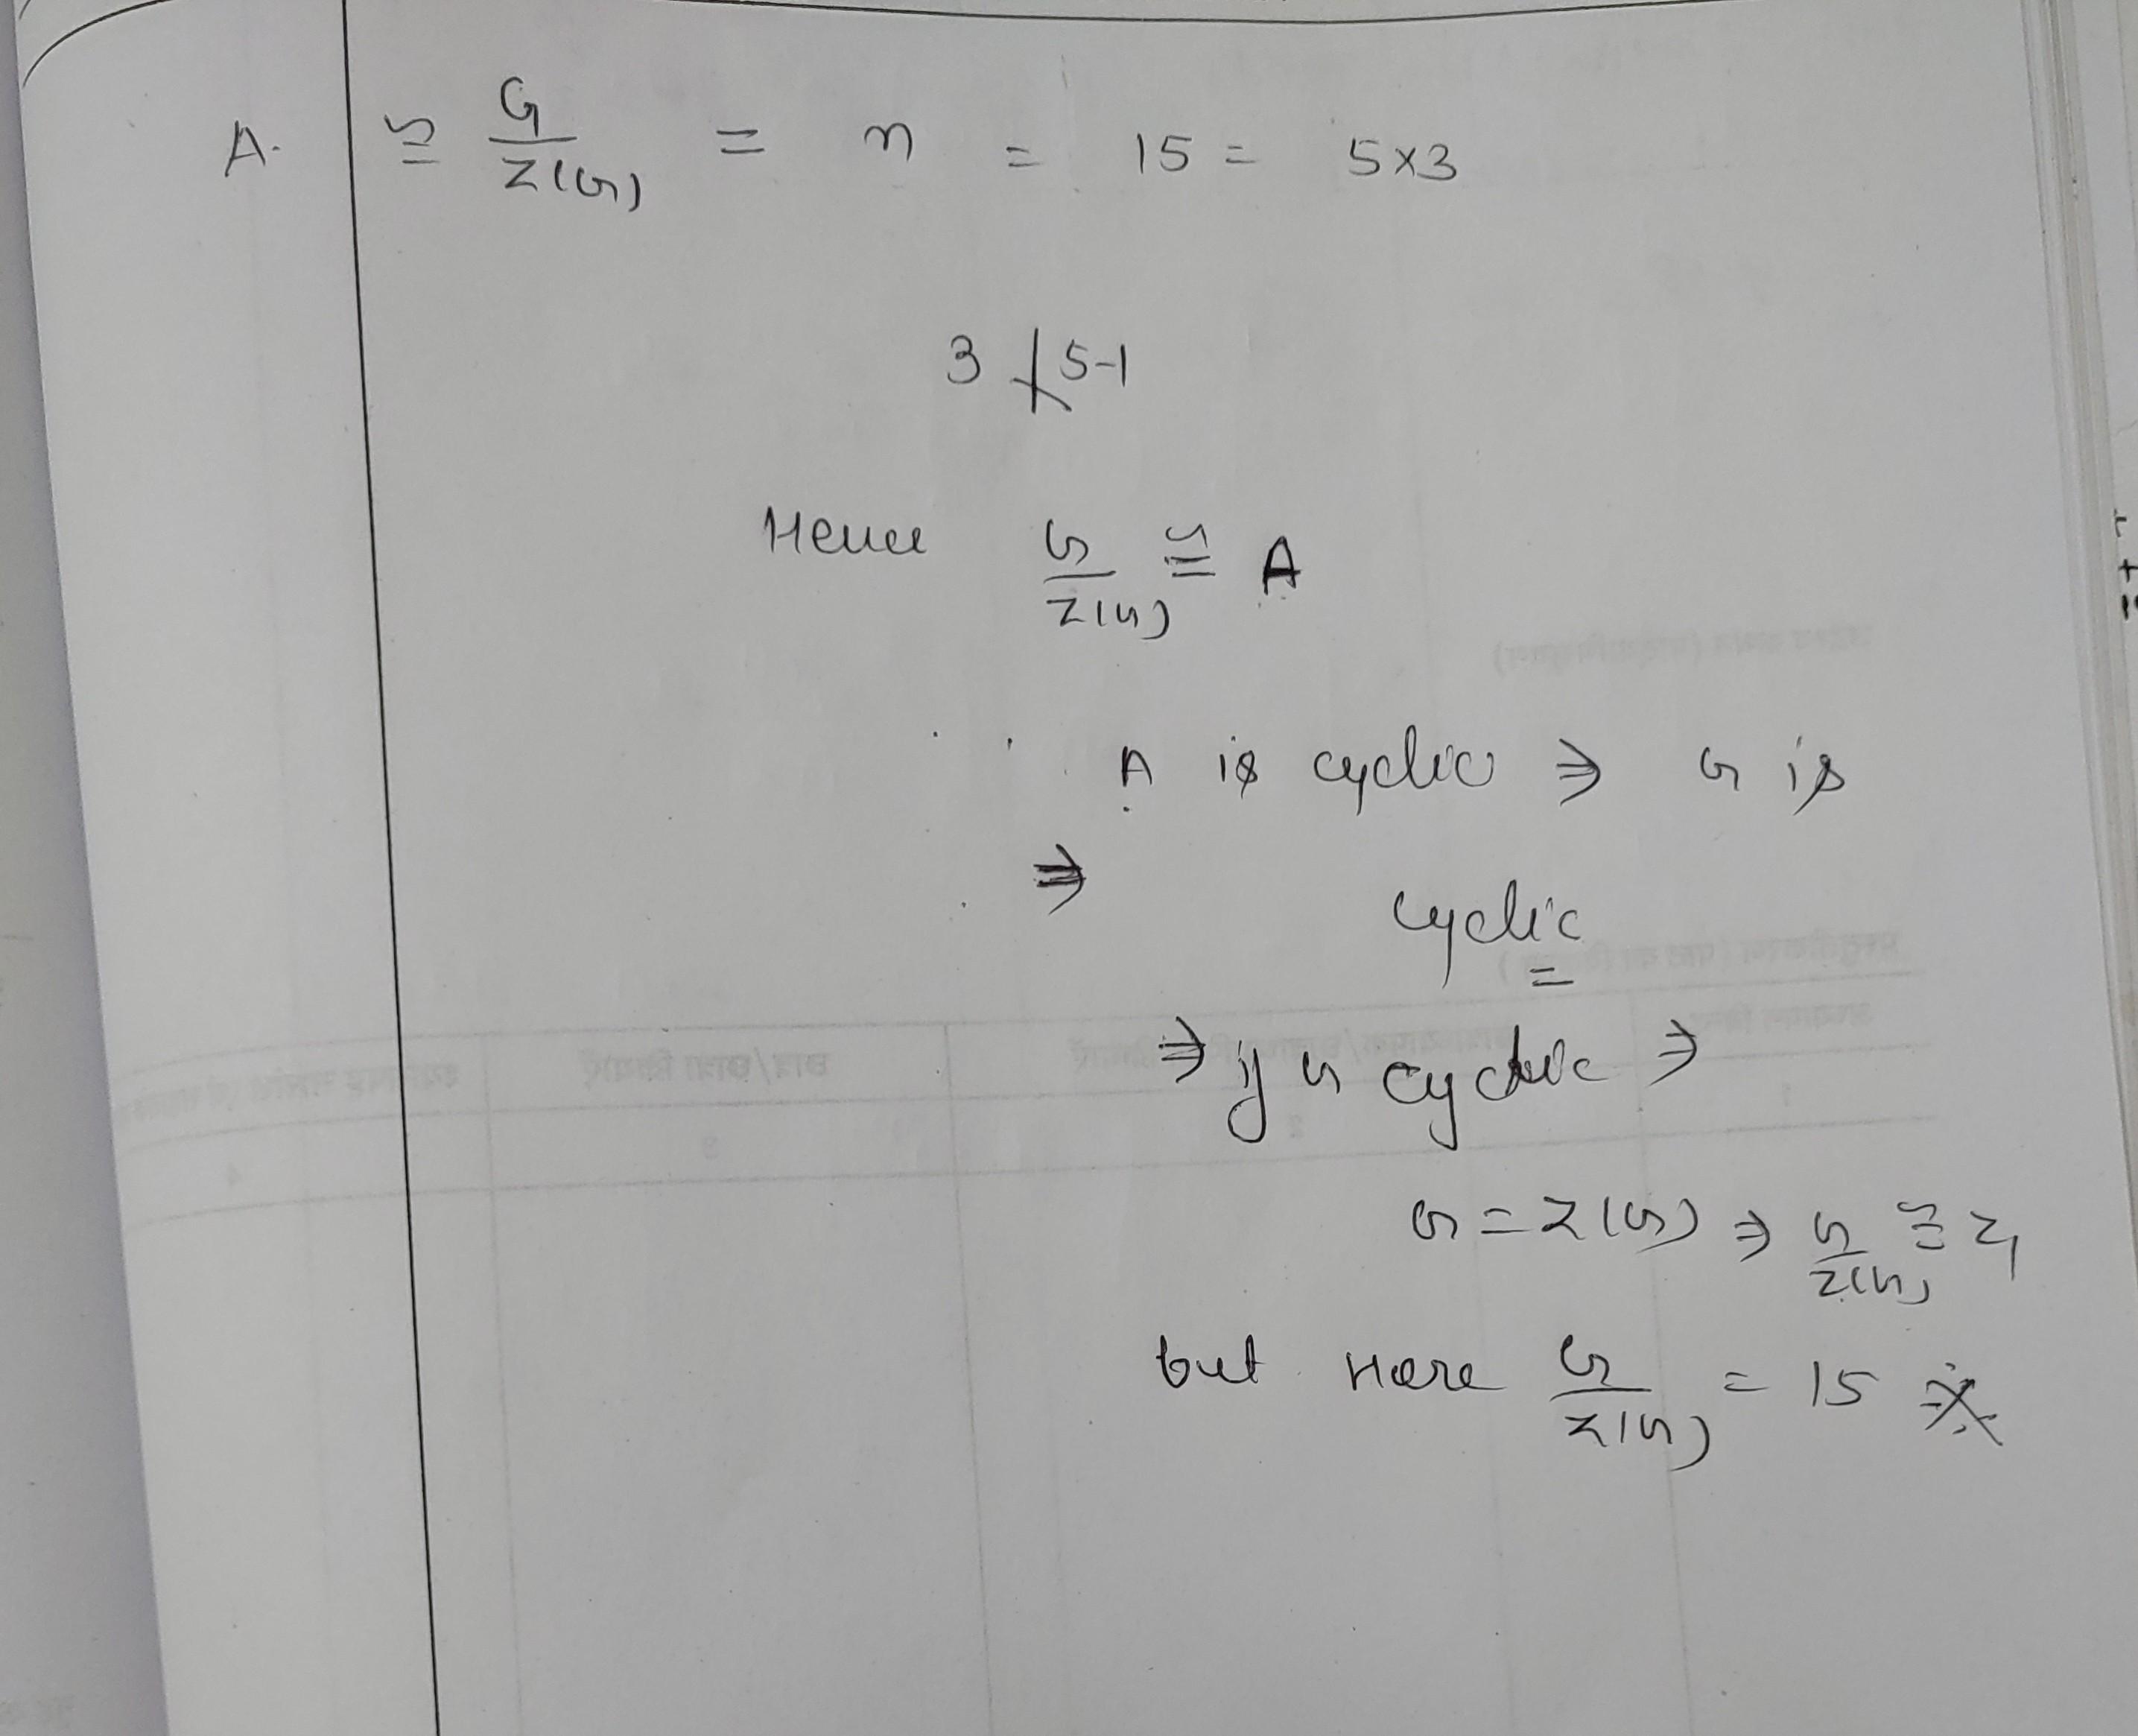 A. ≅ G/Z(G) = n = 15 = 5×3
3 ∤ 5-1
Hence G/Z(G) ≅ A
A is cyclic ⇒ G is
⇒ cyclic
⇒ if G cyclic ⇒
G = Z(G) ⇒ G/Z(G) ≅ Z₁
but Here G/Z(G) = 15